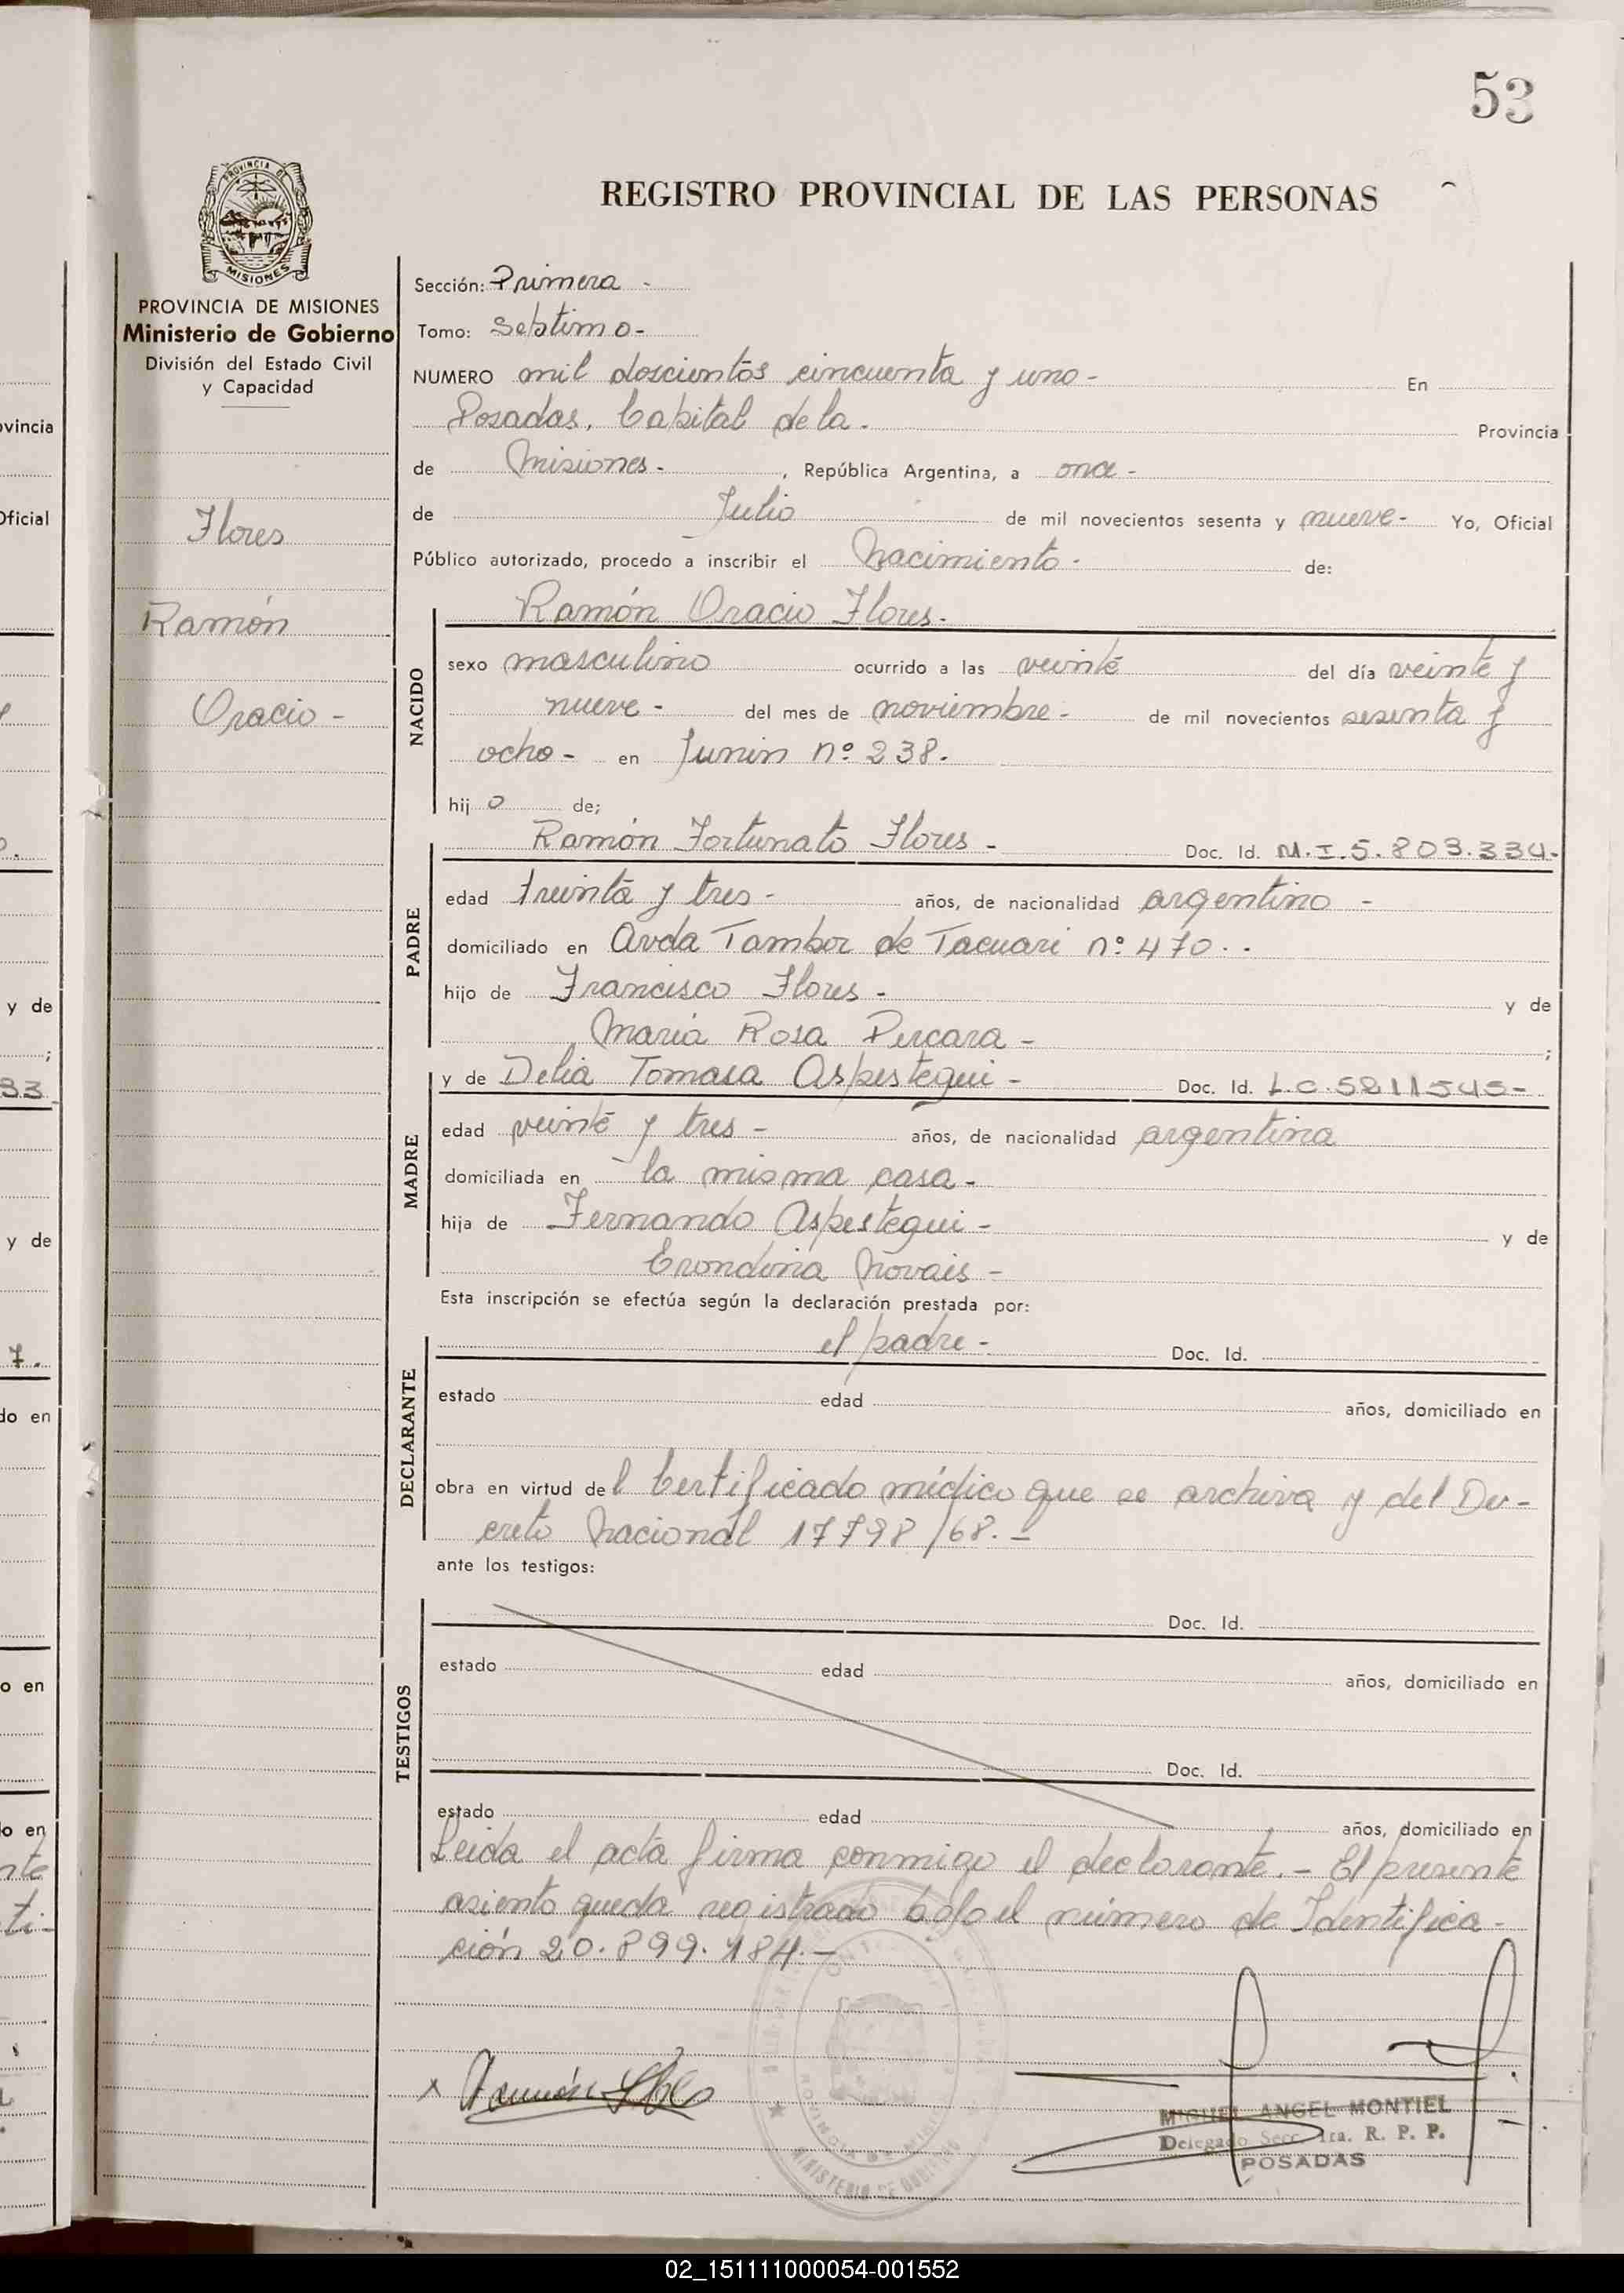 53
REGISTRO PROVINCIAL DE LAS PERSONAS
PROVINCIA DE
MISIONES
PROVINCIA DE MISIONES
Ministerio de Gobierno
División del Estado Civil
y Capacidad
Flores
Ramón
Oracio -
Sección: Primera -
Tomo: Septimo -
NUMERO mil doscientos cincuenta y uno - En
Posadas, Capital de la - Provincia
de Misiones - , República Argentina, a once -
de Julio de mil novecientos sesenta y nueve - Yo, Oficial
Público autorizado, procedo a inscribir el Nacimiento - de:
Ramón Oracio Flores -
NACIDO
sexo masculino ocurrido a las veinte del día veinte y
nueve - del mes de noviembre - de mil novecientos sesenta y
ocho - en Junin nº 238.
hij o de;
Ramón Fortunato Flores - Doc. Id. M.I. 5.803.334-
PADRE
edad treinta y tres - años, de nacionalidad argentino -
domiciliado en Avda Tambor de Tacuari nº 470 -
hijo de Francisco Flores - y de
Maria Rosa Percara - ;
y de Delia Tomasa Aspestegui - Doc. Id. L.C. 5811545-
MADRE
edad veinte y tres - años, de nacionalidad argentina
domiciliada en la misma casa -
hija de Fernando Aspestegui - y de
Erondina Novais -
Esta inscripción se efectúa según la declaración prestada por:
el padre - Doc. Id.
DECLARANTE
estado edad años, domiciliado en
obra en virtud del Certificado médico que se archiva y del De-
creto Nacional 17798/68. -
ante los testigos:
Doc. Id.
TESTIGOS
estado edad años, domiciliado en
Doc. Id.
estado edad años, domiciliado en
Leida el acta firma conmigo el declarante. - El presente
asiento queda registrado bajo el número de Identifica-
ción 20.899.184. -
x Ramón Flores
MIGUEL ANGEL MONTIEL
Delegado Secc. 1ra. R. P. P.
POSADAS
MINISTERIO DE GOBIERNO
vincia
Oficial
y de
;
33
y de
7.
do en
o en
lo en
nte
ti-
02_151111000054-001552